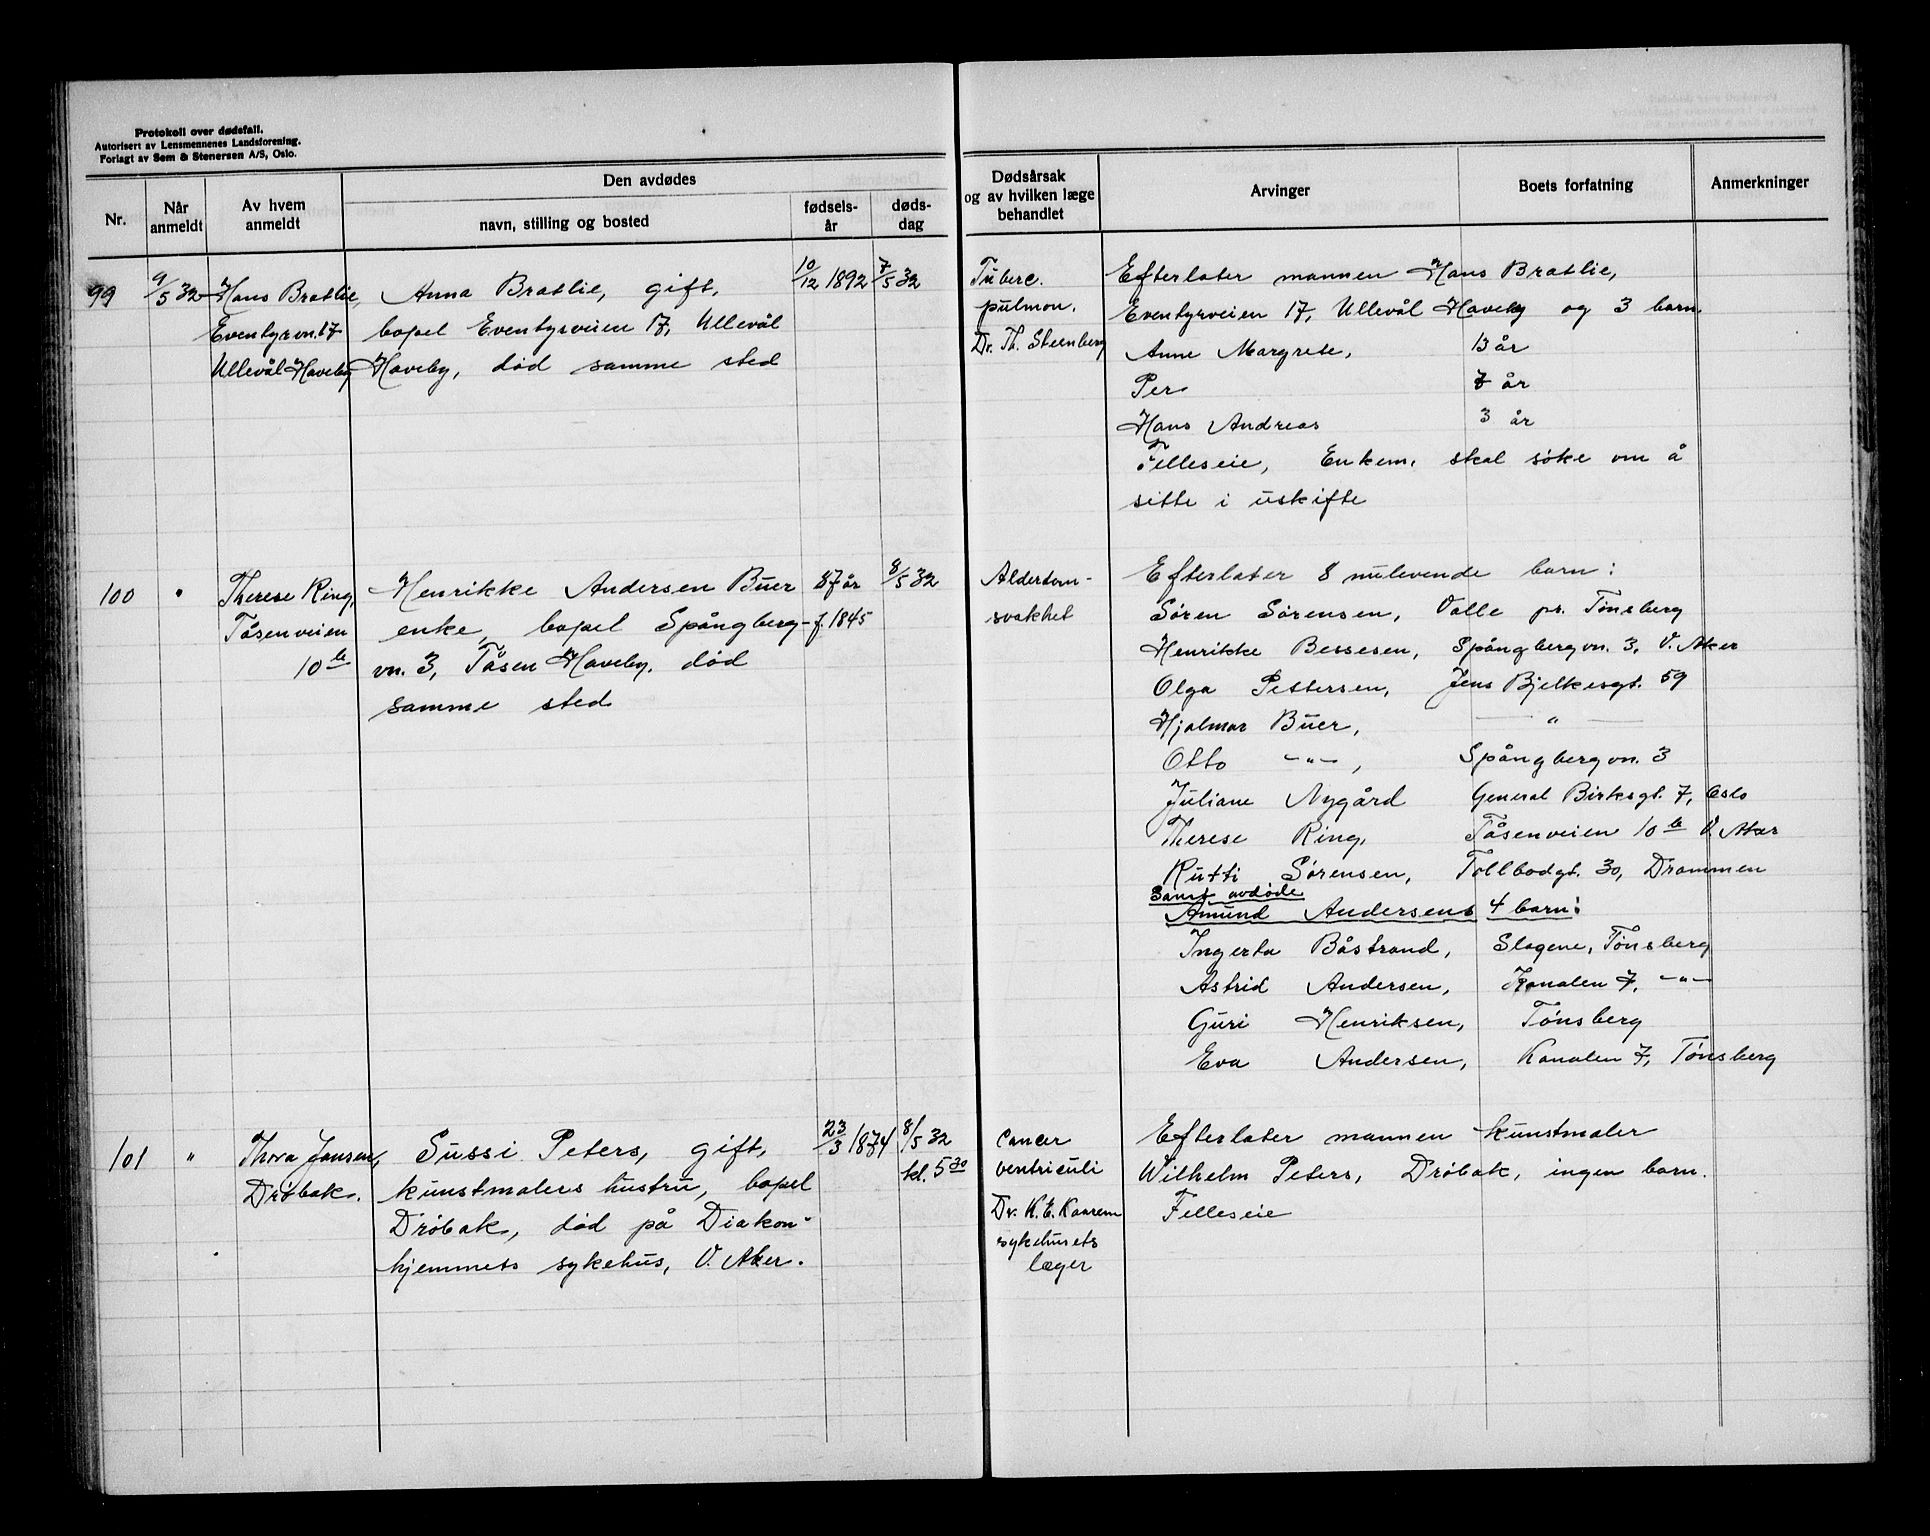 Protokoll over dødsfall.
Autorisert av Lensmennenes Landsforening.
Forlagt av Sem & Stenersen A/S, Oslo.
Nr.
Når anmeldt
Av hvem anmeldt
Den avdødes
navn, stilling og bosted
fødsels-år
døds-dag
Dødsårsak
og av hvilken læge
behandlet
Arvinger
Boets forfatning
Anmerkninger
99
9/5 32
Hans Bratlie,
Eventyrvn. 17
Ullevål Haveby
Anna Bratlie, gift,
bopel Eventyrveien 17, Ullevål
Haveby, død samme sted
10/12 1892
7/5 32
Tuberc.
pulmon.
Dr. Th. Steenberg
Efterlater mannen Hans Bratlie,
Eventyrveien 17, Ullevål Haveby og 3 barn
Anne Margrete, 13 år
Per 7 år
Hans Andreas 3 år
Felleseie, Enkem. skal søke om å
sitte i uskifte
100
"
Therese Ring,
Tåsenveien
10 b
Henrikke Andersen Buer
enke, bopel Spångberg-
vn. 3, Tåsen Haveby, død
samme sted
87 år
f. 1845
8/5 32
Alderdom-
svakhet
Efterlater 8 nulevende barn:
Søren Sørensen, Valle pr. Tønsberg
Henrikke Bessesen, Spångbergvn. 3, V. Aker
Olga Pettersen, Jens Bjelkesgt. 59
Hjalmar Buer, — " —
Otto -"-, Spångbergvn. 3
Juliane Nygård General Birksgt. 7, Oslo
Therese Ring, Tåsenveien 10 b V. Aker
Rutti Sørensen, Tollbodgt. 30, Drammen
Samt avdøde
Amund Andersens 4 barn:
Ingerta Båstrand, Slagene, Tønsberg
Astrid Andersen, Kanalen 7, -"-
Guri Henriksen, Tønsberg
Eva Andersen, Kanalen 7, Tønsberg
101
"
Thora Jansen,
Drøbak.
Sussi Peters, gift,
kunstmalers hustru, bopel
Drøbak, død på Diakon-
hjemmets sykehus, V. Aker.
23/3 1874
8/5 32
kl. 5 30
Cancer
ventriculi
Dr. K. E. Kaarem
sykehusets
læger
Efterlater mannen kunstmaler
Wilhelm Peters, Drøbak, ingen barn.
Felleseie